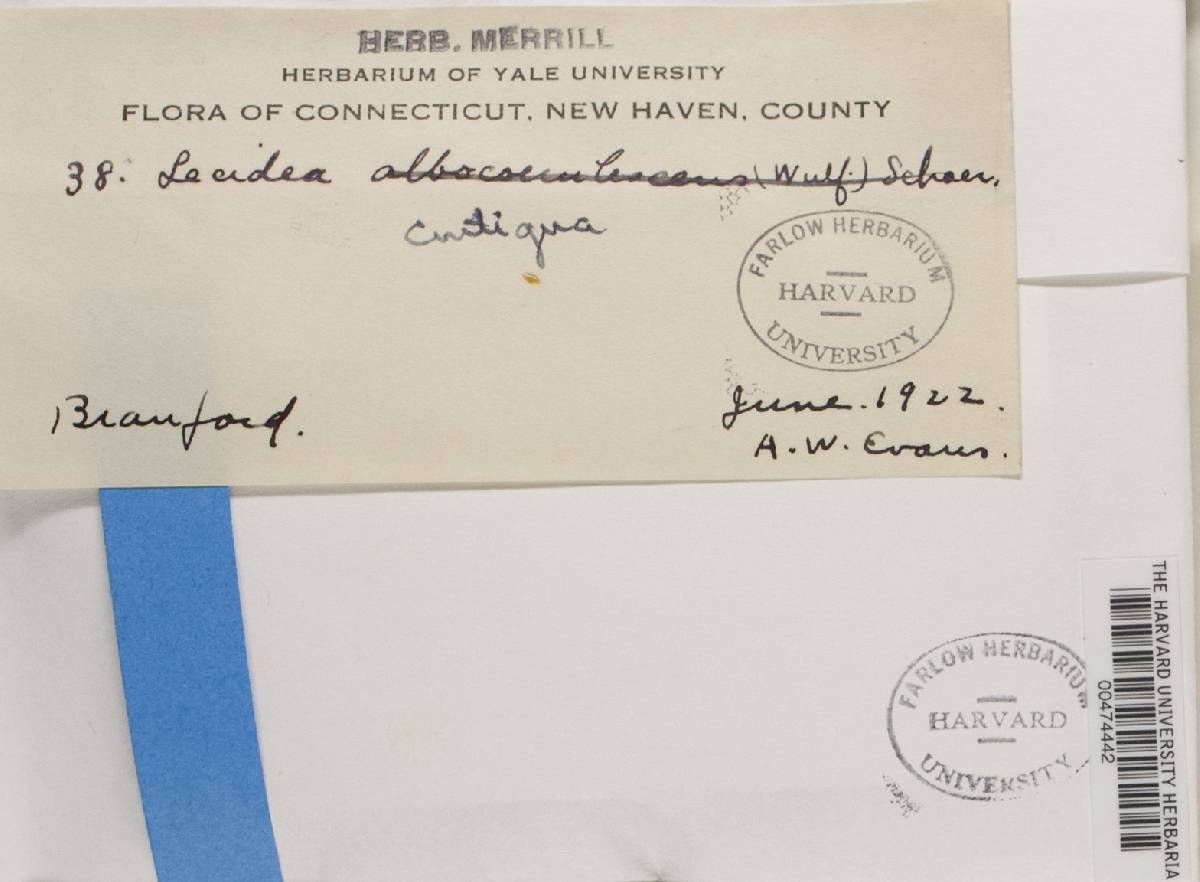 HERB. MERRILL
HERBARIUM OF YALE UNIVERSITY
FLORA OF CONNECTICUT, NEW HAVEN, COUNTY
38. Lecidea albocoerulescens (Wulf.) Schaer.
contigua
FARLOW HERBARIUM
HARVARD
UNIVERSITY
Branford.
June. 1922.
A. W. Evans.
FARLOW HERBARIUM
HARVARD
UNIVERSITY
THE HARVARD UNIVERSITY HERBARIA
00474442